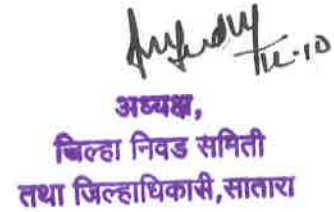 अध्यक्ष,
जिल्हा निवड समिती
तथा जिल्हाधिकारी,सातारा